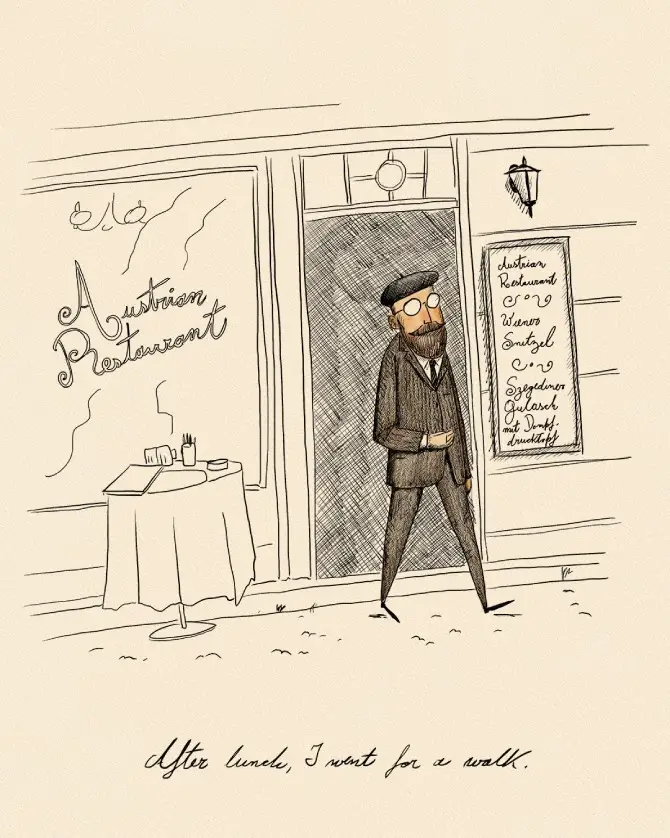 Austrian
Restaurant
Austrian
Restaurant
Wiener
Snitzel
Szegediner
Gulasch
mit Dampf-
drucktopf
After lunch, I went for a walk.